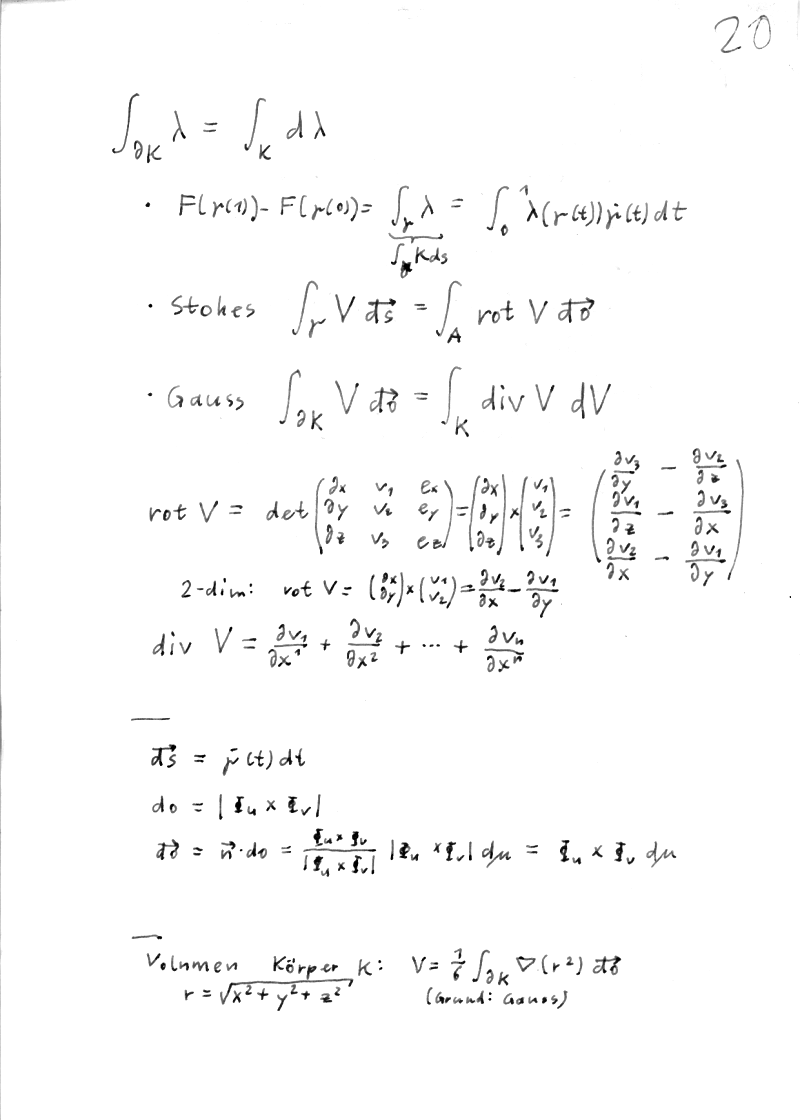 20
∫_∂K λ = ∫_K dλ
· F(γ(1)) - F(γ(0)) = ∫_γ λ = ∫_0^1 λ(γ(t)) γ̇(t) dt
∫_γ K ds
· Stokes ∫_γ V d⃗s = ∫_A rot V d⃗o
· Gauss ∫_∂K V d⃗o = ∫_K div V dV
rot V = det (∂x v₁ eₓ; ∂y v₂ e_y; ∂z v₃ e_z) = (∂x; ∂y; ∂z) × (v₁; v₂; v₃) = (∂v₃/∂y - ∂v₂/∂z; ∂v₁/∂z - ∂v₃/∂x; ∂v₂/∂x - ∂v₁/∂y)
2-dim: rot V = (∂x; ∂y) × (v₁; v₂) = ∂v₂/∂x - ∂v₁/∂y
div V = ∂v₁/∂x¹ + ∂v₂/∂x² + ... + ∂vₙ/∂xⁿ
d⃗s = γ̇(t) dt
do = |Φᵤ × Φᵥ|
d⃗o = n⃗·do = (Φᵤ × Φᵥ)/|Φᵤ × Φᵥ| |Φᵤ × Φᵥ| dμ = Φᵤ × Φᵥ dμ
Volumen Körper K: V = 1/6 ∫_∂K ∇(r²) d⃗o
r = √(x² + y² + z²) (Grund: Gauss)